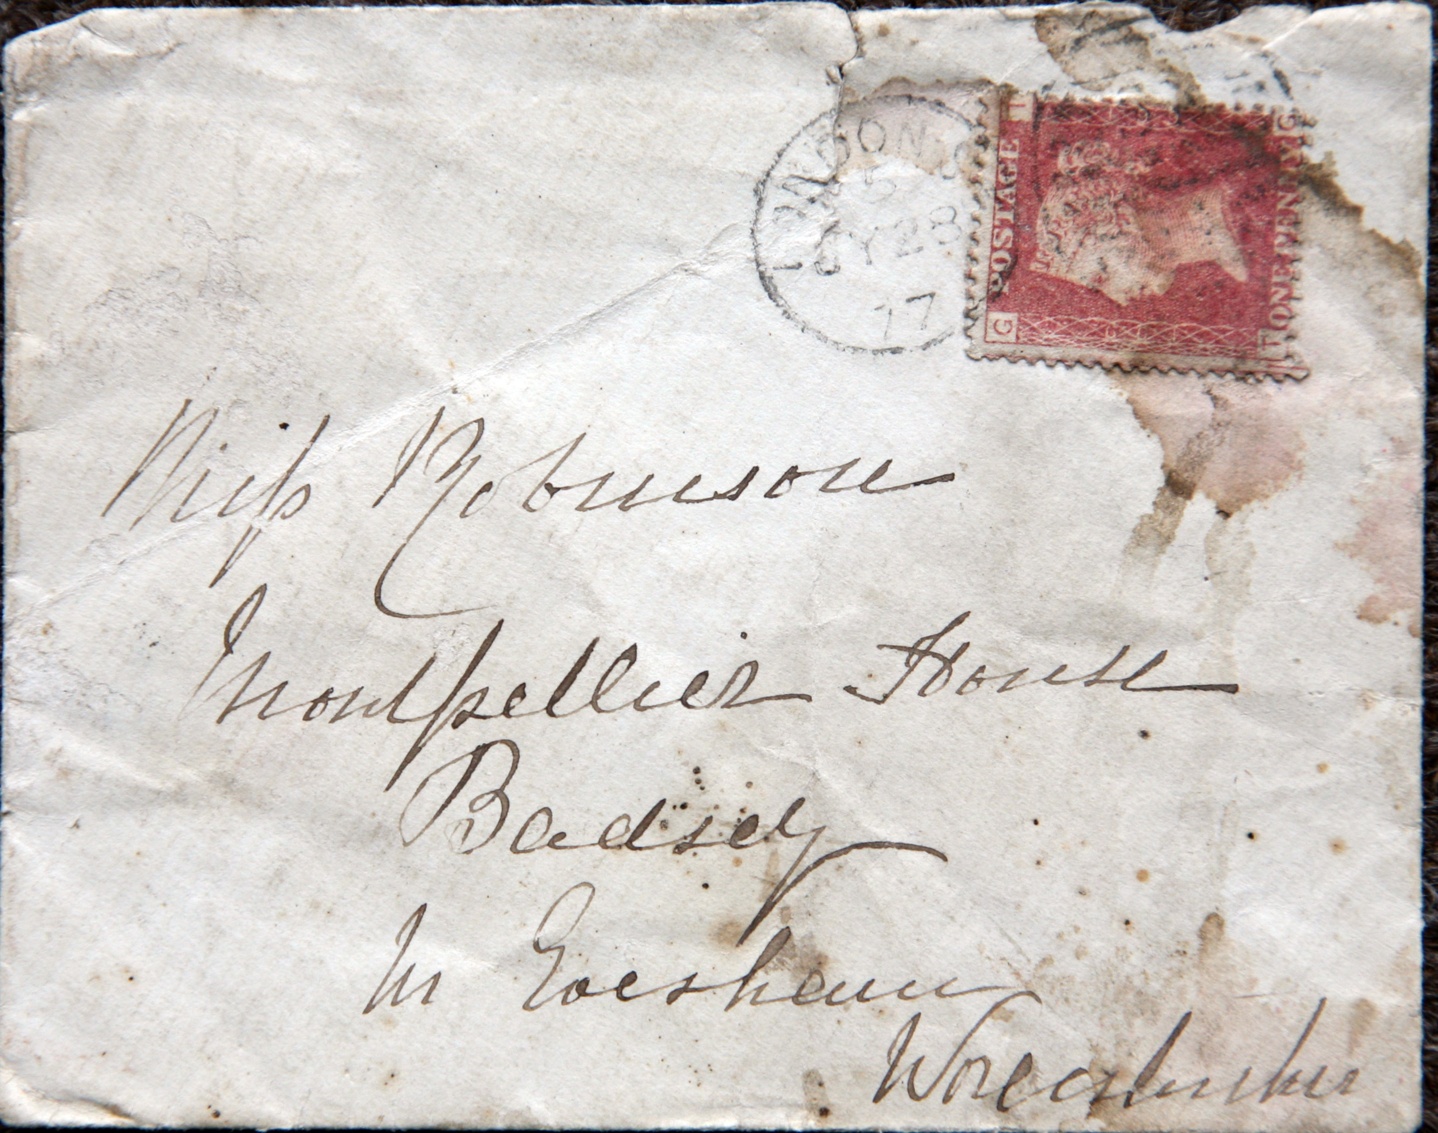 LONDON
5
JY 28
77
POSTAGE
ONE PENNY
G
Miss Robinson
Montpellier House
Badsey
Nr Evesham
Worcestershire